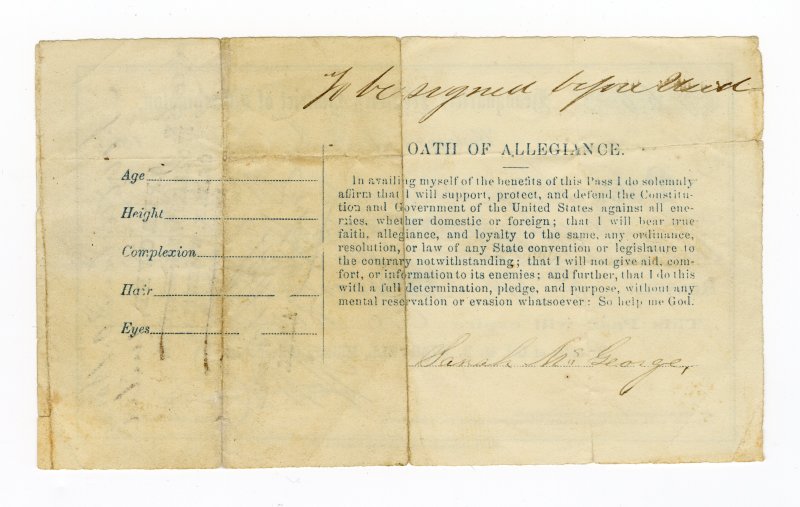 To be signed before Used
OATH OF ALLEGIANCE.
Age
Height
Complexion
Hair
Eyes
In availing myself of the benefits of this Pass I do solemnly
affirm that I will support, protect, and defend the Constitu-
tion and Government of the United States against all ene-
mies, whether domestic or foreign; that I will bear true
faith, allegiance, and loyalty to the same, any ordinance,
resolution, or law of any State convention or legislature to
the contrary notwithstanding; that I will not give aid, com-
fort, or information to its enemies; and further, that I do this
with a full determination, pledge, and purpose, without any
mental reservation or evasion whatsoever: So help me God.
Sarah McGeorge,